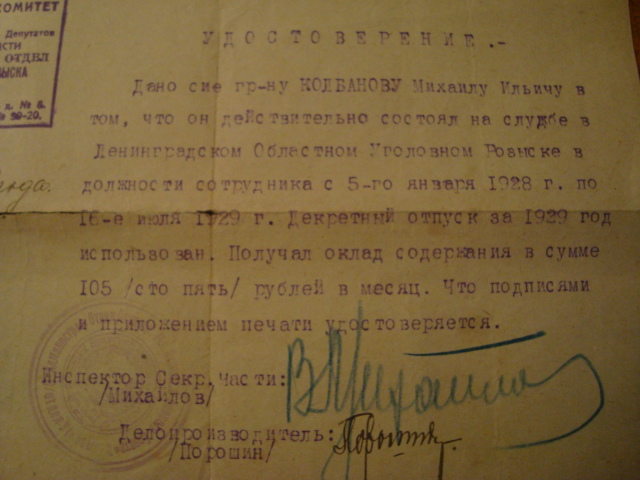 КОМИТЕТ
Депутатов
СТИ
ОТДЕЛ
ЫСКА
к. № 8.
№ 99-20.
УДОСТОВЕРЕНИЕ.-
Дано сие гр-ну КОЛБАНОВУ Михаилу Ильичу в
том, что он действительно состоял на службе в
Ленинградском Областном Уголовном Розыске в
должности сотрудника с 5-го января 1928 г. по
16-е июля 1929 г. Декретный отпуск за 1929 год
использован. Получал оклад содержания в сумме
105 /сто пять/ рублей в месяц. Что подписями
и приложением печати удостоверяется.
Инспектор Секр.Части:
/Михайлов/
Делопроизводитель:
/Порошин/